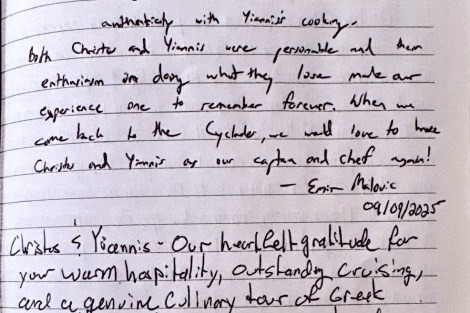 authenticity with Yiannis's cooking.
Both Christos and Yiannis were personable and them
enthusiasm on doing what they love made our
experience one to remember forever. When we
come back to the Cyclades, we would love to have
Christos and Yiannis as our captain and chef again!
— Emir Malovic
09/09/2025
Christos & Yiannis - Our heartfelt gratitude for
your warm hospitality, outstanding cruising,
and a genuine culinary tour of Greek